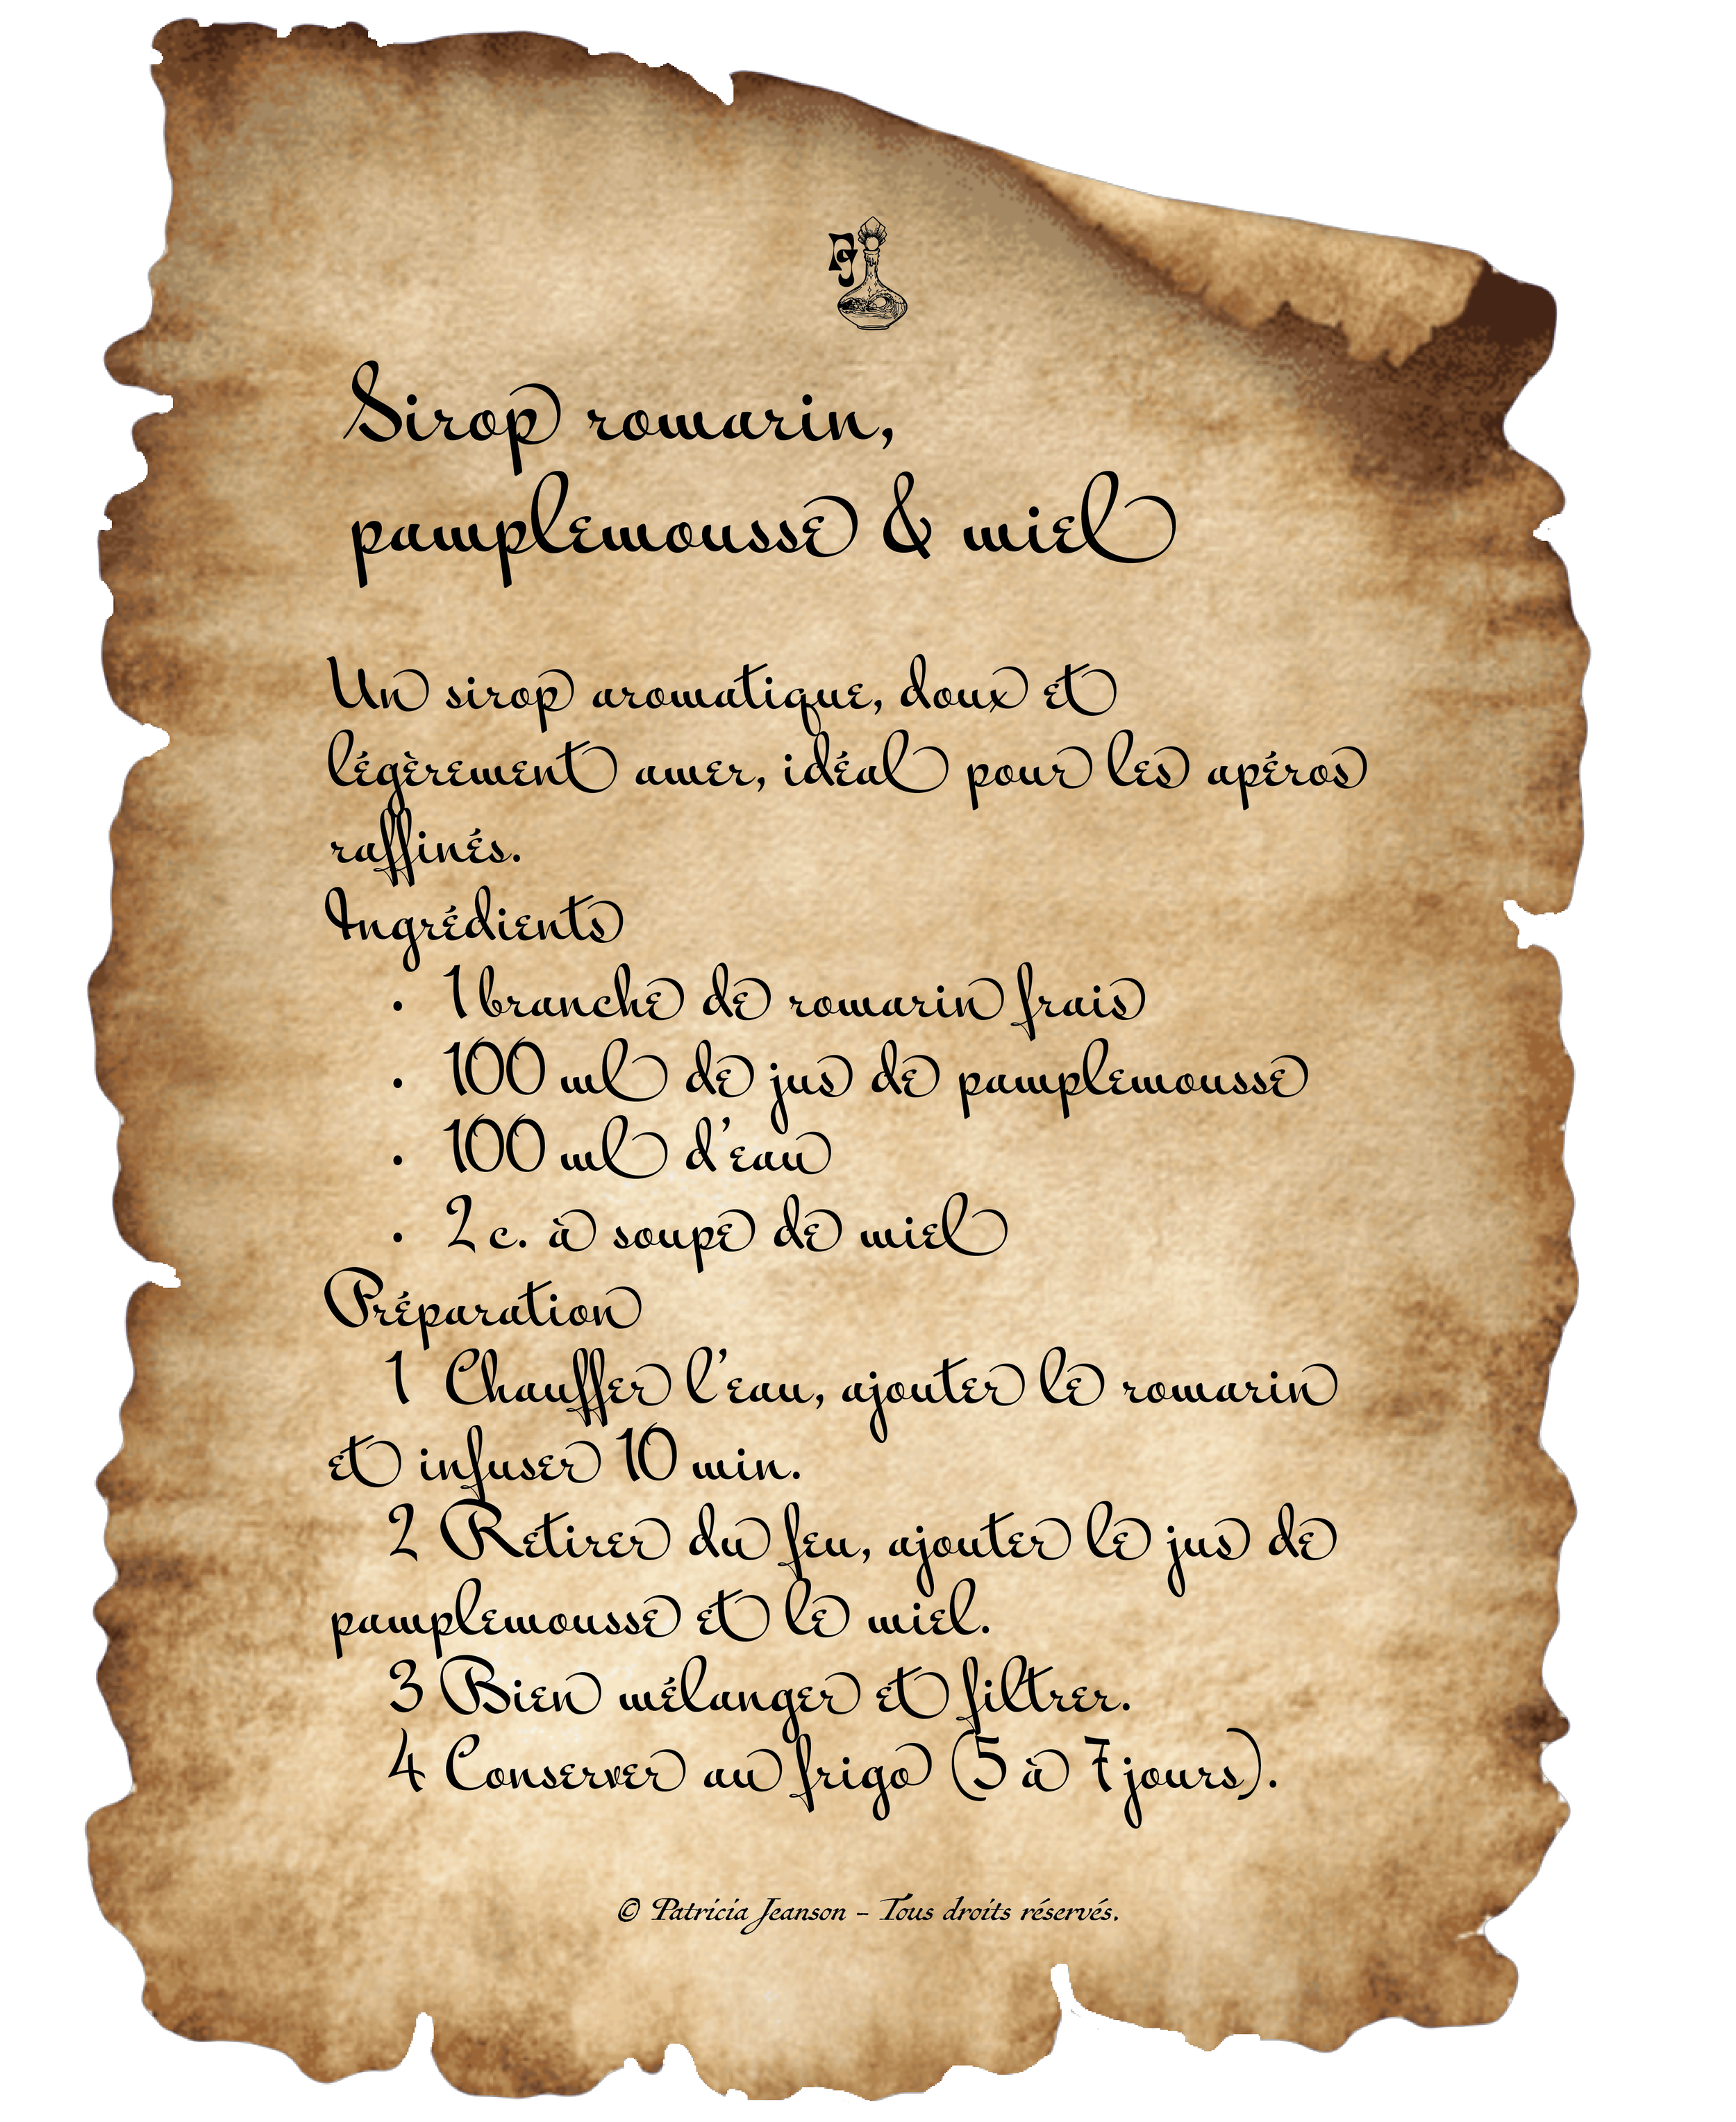 PJ
Sirop romarin,
pamplemousse & miel
Un sirop aromatique, doux et
légèrement amer, idéal pour les apéros
raffinés.
Ingrédients
• 1 branche de romarin frais
• 100 ml de jus de pamplemousse
• 100 ml d'eau
• 2 c. à soupe de miel
Préparation
1 Chauffer l'eau, ajouter le romarin
et infuser 10 min.
2 Retirer du feu, ajouter le jus de
pamplemousse et le miel.
3 Bien mélanger et filtrer.
4 Conserver au frigo (5 à 7 jours).
© Patricia Jeanson – Tous droits réservés.